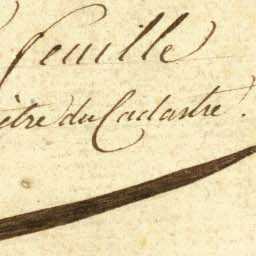 Feuille
ètre du Cadastre.